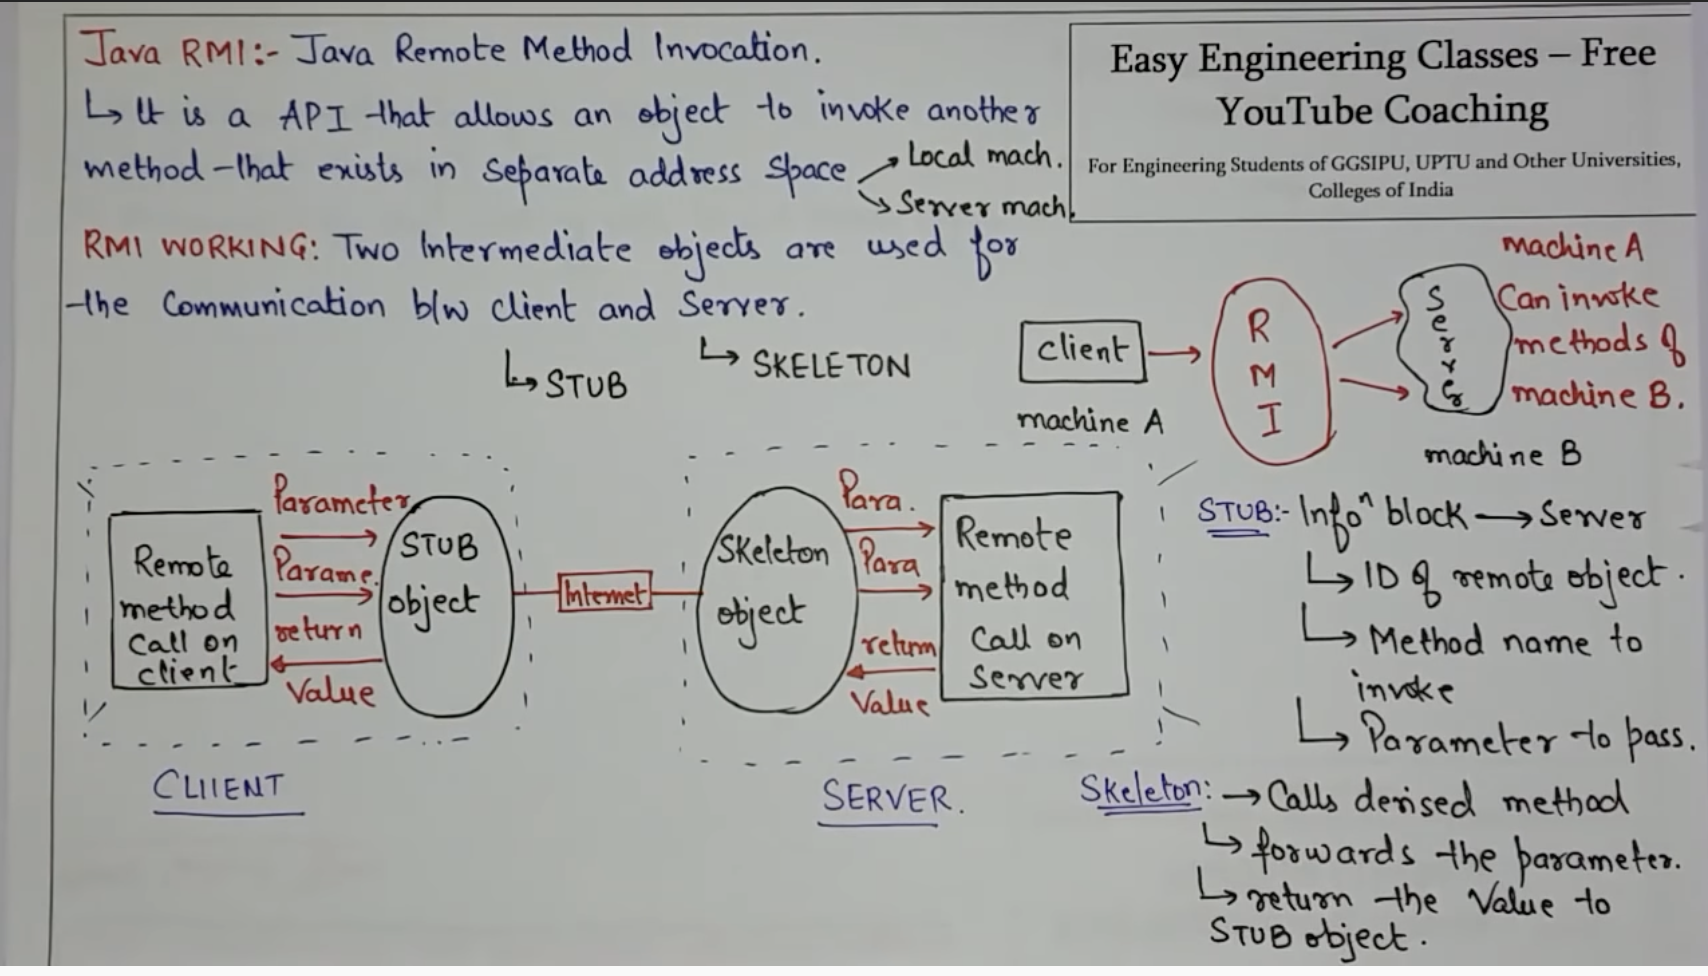 Java RMI:- Java Remote Method Invocation.
↳ It is a API that allows an object to invoke another
method that exists in separate address space
→ Local mach.
→ Server mach.
Easy Engineering Classes – Free
YouTube Coaching
For Engineering Students of GGSIPU, UPTU and Other Universities,
Colleges of India
RMI WORKING: Two Intermediate objects are used for
the Communication b/w client and Server.
↳ STUB
↳ SKELETON
client
machine A
RMI
Server
machine B
machine A
Can invoke
methods of
machine B.
Remote
method
Call on
client
Parameter
Parame.
return
Value
STUB
object
Internet
Skeleton
object
Para.
Para
return
Value
Remote
method
Call on
Server
CLIIENT
SERVER.
STUB:- Infoⁿ block → Server
↳ ID of remote object.
↳ Method name to
invoke
↳ Parameter to pass.
Skeleton: → Calls derised method
↳ forwards the parameter.
↳ return the Value to
STUB object.